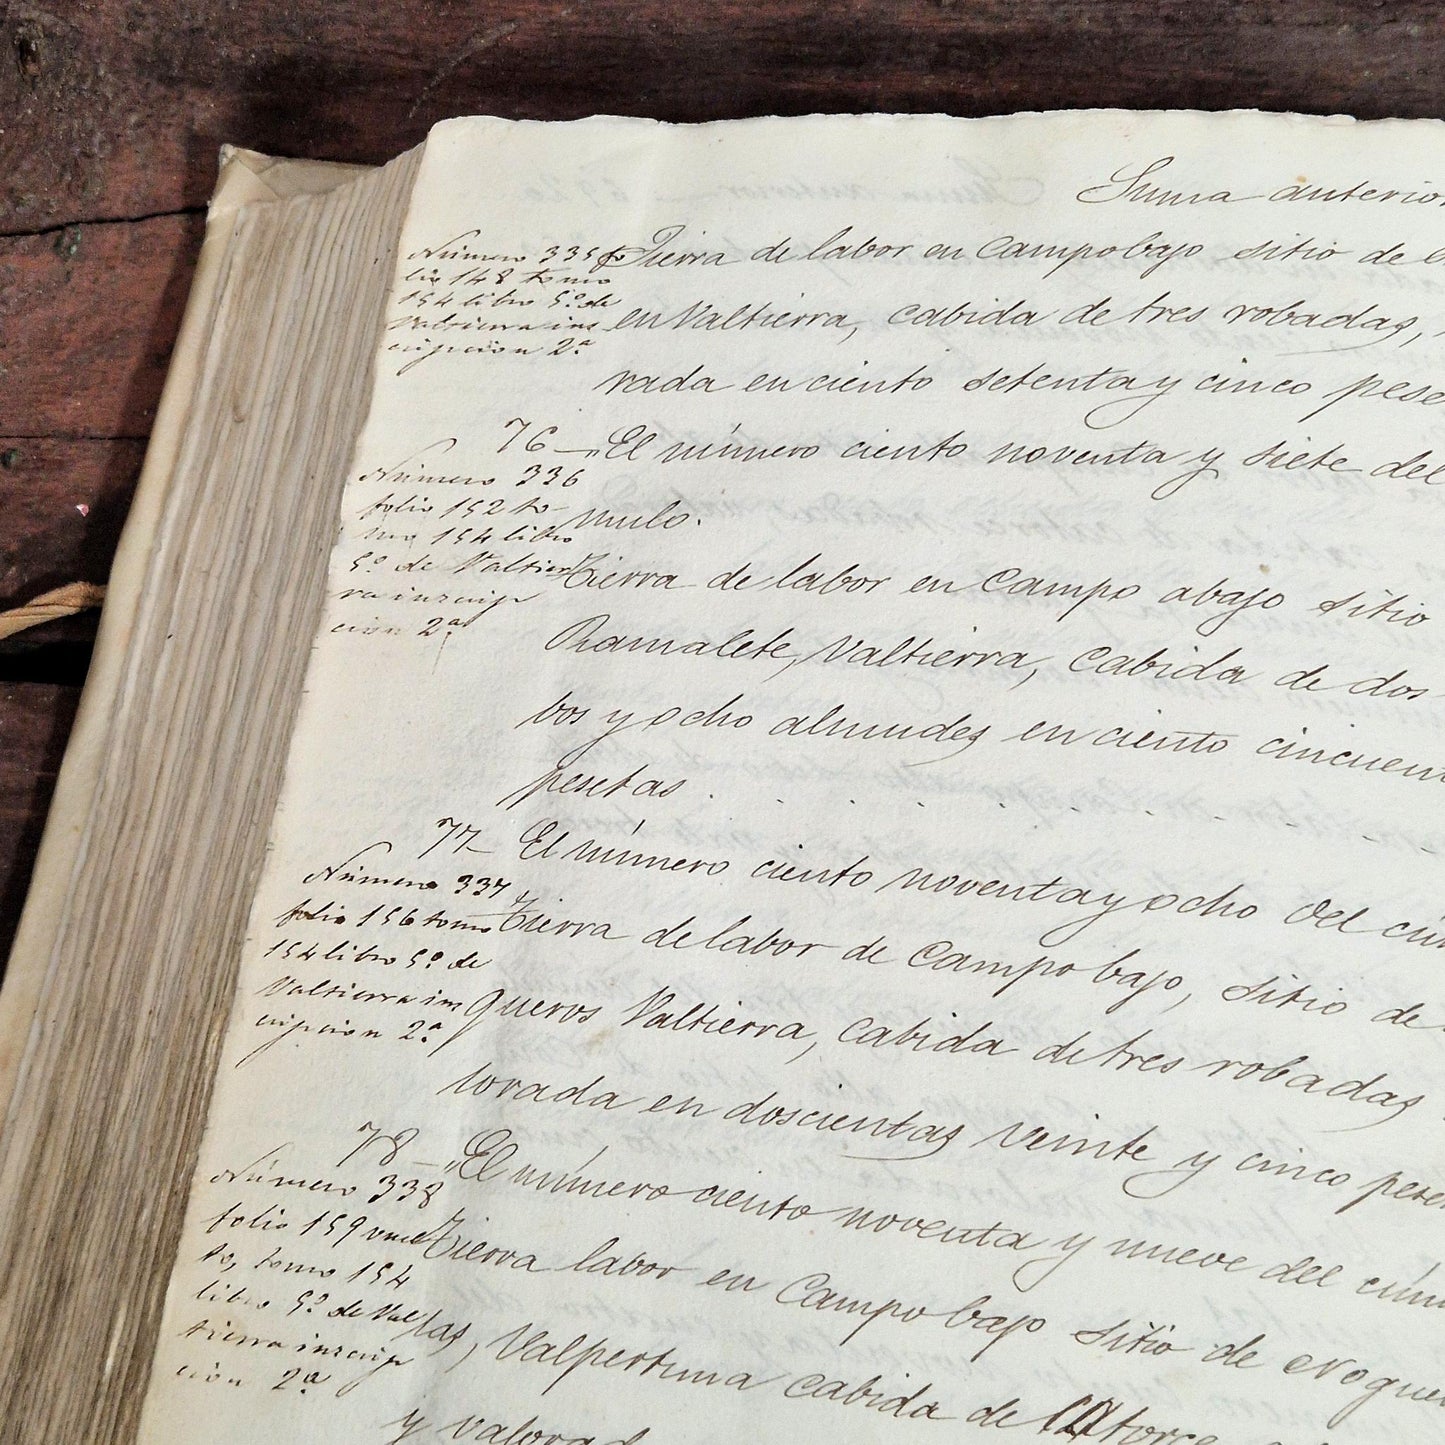 Suma anterior
Número 335 fo
lio 148 tomo
154 libro 5º de
Valtierra ins
cripcion 2ª
Tierra de labor en Campo bajo sitio de
en Valtierra, cabida de tres robadas,
rada en ciento setenta y cinco pese
76 – El número ciento noventa y siete del
mulo.
Número 336
folio 152 to-
mo 154 libro
5º de Valtier
ra inscrip
cion 2ª
Tierra de labor en Campo abajo sitio
Ramalete, Valtierra, Cabida de dos
bos y ocho almudes en ciento cincuent
pesetas . . . . . . . . . .
77 – El número ciento noventa y ocho del cú
Número 337
folio 156 tomo
154 libro 5º de
Valtierra ins
cripcion 2ª
Tierra de labor de Campo bajo, sitio de
queros Valtierra, cabida de tres robadas
lorada en doscientas veinte y cinco pese
78 – "El número ciento noventa y nueve del cúm
Número 338
folio 159 vuel
to, tomo 154
libro 5º de Val
tierra inscrip
cion 2ª
Tierra labor en Campo bajo sitio de
las, Valpertuna cabida de catorce
y valorad